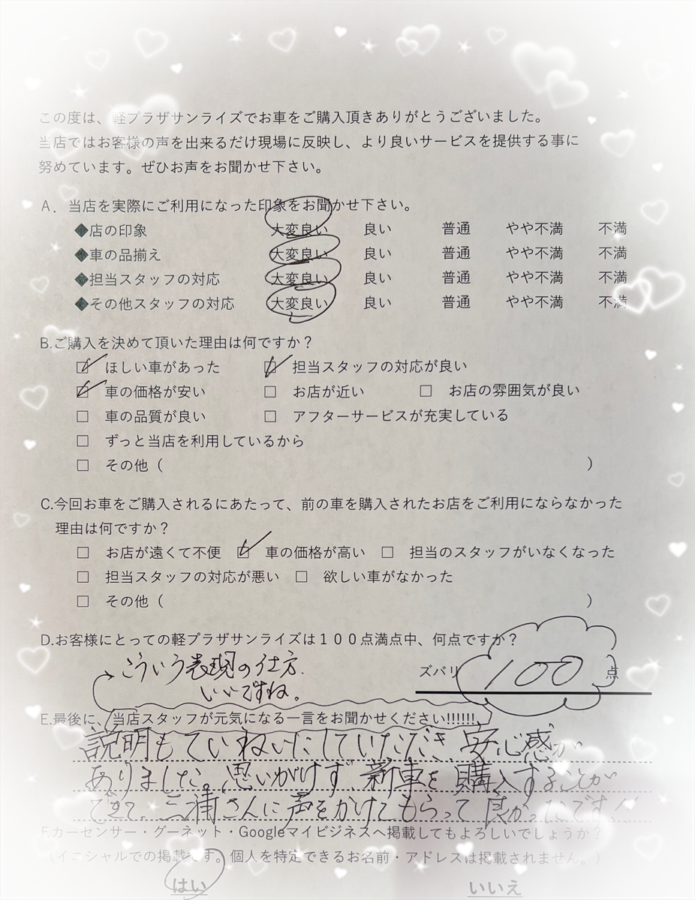 この度は、軽プラザサンライズでお車をご購入頂きありがとうございました。
当店ではお客様の声を出来るだけ現場に反映し、より良いサービスを提供する事に
努めています。ぜひお声をお聞かせ下さい。
A．当店を実際にご利用になった印象をお聞かせ下さい。
◆店の印象 大変良い 良い 普通 やや不満 不満
◆車の品揃え 大変良い 良い 普通 やや不満 不満
◆担当スタッフの対応 大変良い 良い 普通 やや不満 不満
◆その他スタッフの対応 大変良い 良い 普通 やや不満 不満
B.ご購入を決めて頂いた理由は何ですか？
☑ ほしい車があった ☑ 担当スタッフの対応が良い
☑ 車の価格が安い □ お店が近い □ お店の雰囲気が良い
□ 車の品質が良い □ アフターサービスが充実している
□ ずっと当店を利用しているから
□ その他（ ）
C.今回お車をご購入されるにあたって、前の車を購入されたお店をご利用にならなかった
理由は何ですか？
□ お店が遠くて不便 ☑ 車の価格が高い □ 担当のスタッフがいなくなった
□ 担当スタッフの対応が悪い □ 欲しい車がなかった
□ その他（ ）
D.お客様にとっての軽プラザサンライズは１００点満点中、何点ですか？
こういう表現の仕方
いいですね。
ズバリ 100 点
E.最後に、当店スタッフが元気になる一言をお聞かせください!!!!!!
説明もていねいにしていただき 安心感が
ありました。思いがけず 新車を 購入することが
できて、三浦さんに声をかけてもらって 良かったです！
F.カーセンサー・グーネット・Googleマイビジネスへ掲載してもよろしいでしょうか？
（イニシャルでの掲載です。個人を特定できるお名前・アドレスは掲載されません。）
はい いいえ